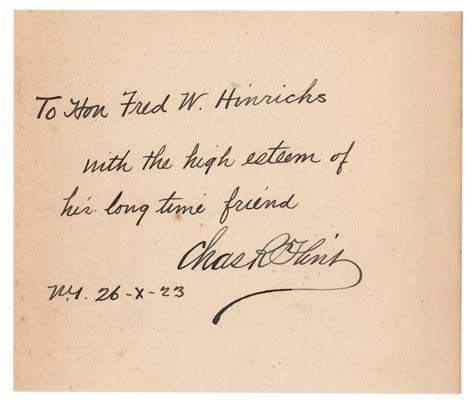 To Hon Fred W. Hinrichs
with the high esteem of
his long time friend
Chas R Flint
N.Y. 26-X-23